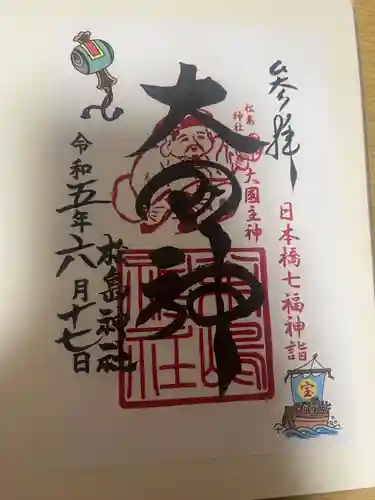 参拝
日本橋七福神詣
松島
神社
大國主神
大国神
松島神社
松島神社
令和五年六月十七日
宝